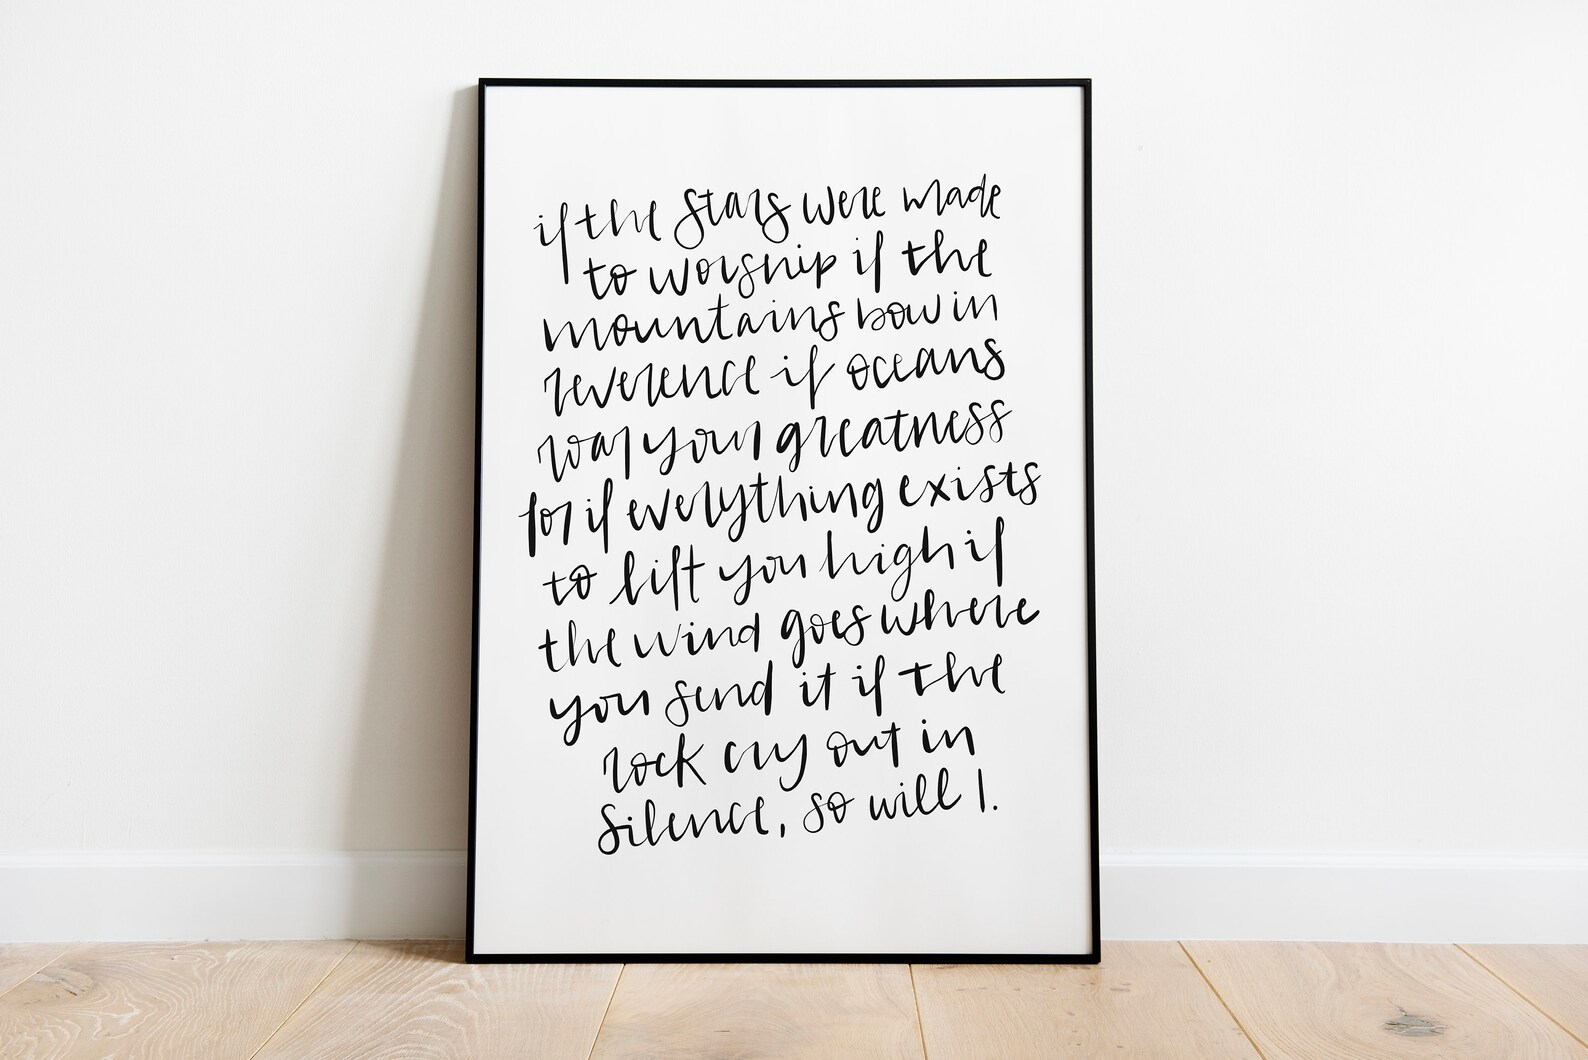 if the stars were made
to worship if the
mountains bow in
reverence if oceans
roar your greatness
for if everything exists
to lift you high if
the wind goes where
you send it if the
rock cry out in
silence, so will I.